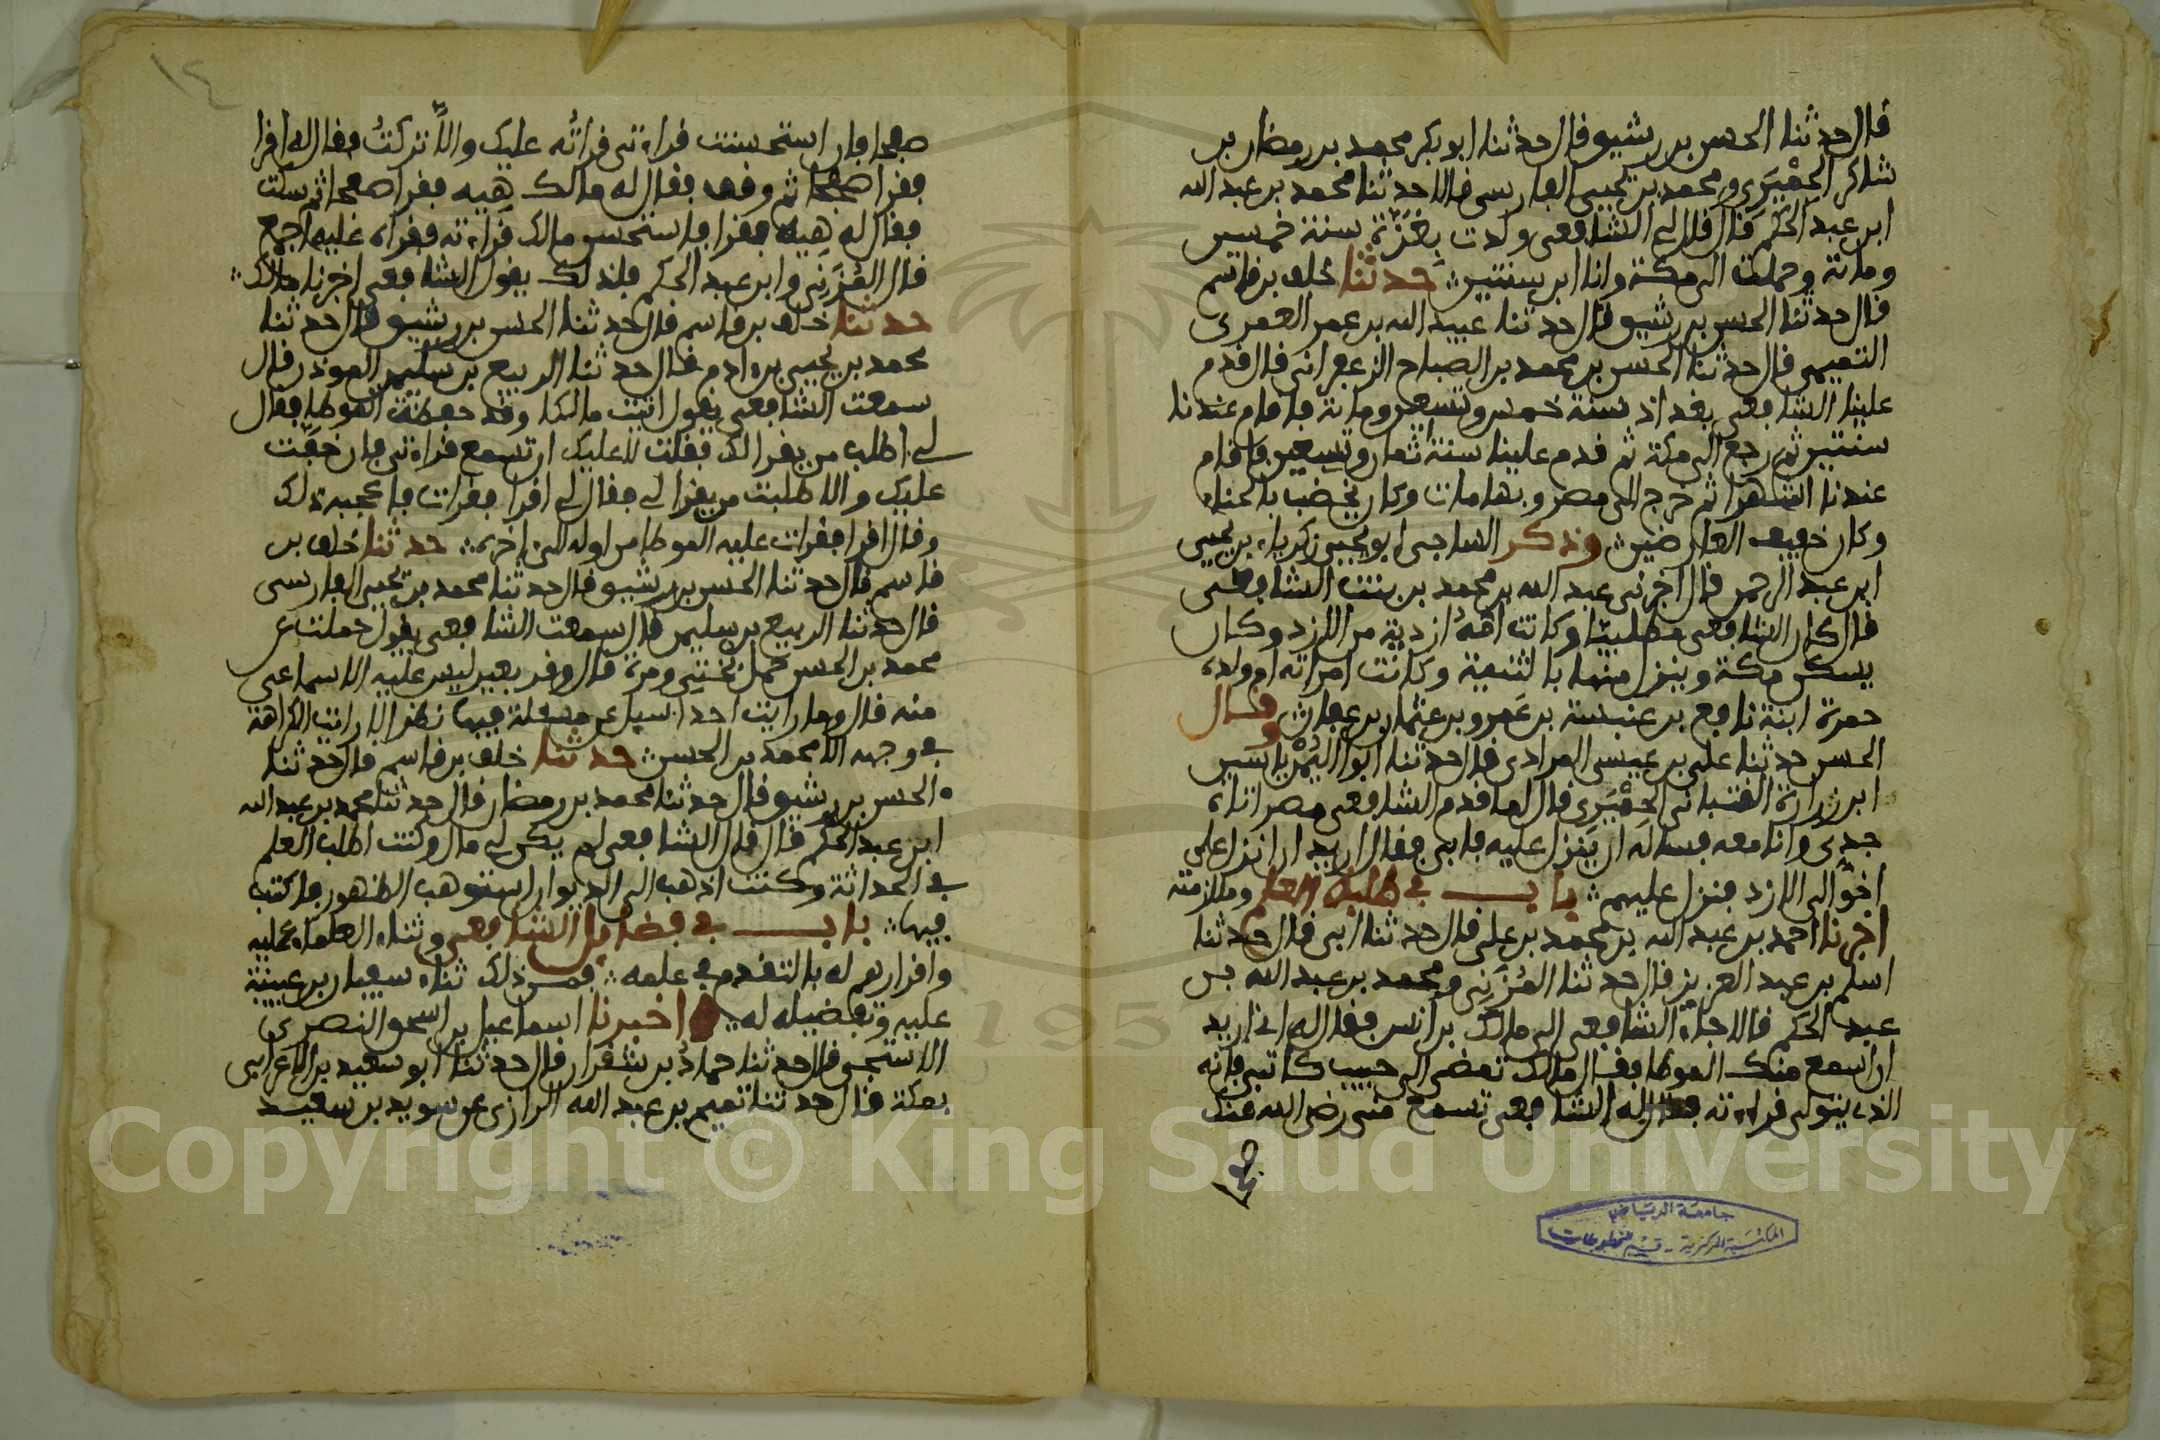 قال حدثنا الحسن بن رشيق قال حدثنا ابو بكر محمد بن رمضان بن
شاكر الحِمْيَرِي ومحمد بن يحيى الفارسى قالا حدثنا محمد بن عبد الله
ابن عبد الحكم قال قال لى الشافعى ولدت بِغَزَّةَ سنة خمسين
ومائة وحملت الى مكة وانا ابن سنتين حدثنا خلف بن قاسم
قال حدثنا الحسن بن رشيق قال حدثنا عبيد الله بن عمر العمرى
التميمى قال حدثنا الحسن بن محمد بن الصباح الزعفرانى قال قدم
علينا الشافعى بغداذ سنة خمس وتسعين ومائة فاقام عندنا
سنتين ثم رجع الى مكة ثم قدم علينا سنة ثمان وتسعين فاقام
عندنا اشهرا ثم خرج الى مصر وبها مات وكان يخضب بالحناء
وكان خفيف العارضين وذكر الساجى ابو يحيى زكرياء بن يحيى
ابن عبد الرحمن قال اخبرنى عبد الله بن محمد بن بنت الشافعى
قال كان الشافعى مطلبيًا وكانت امهُ ازدية من الازد وكان
يسكن مكة وينزل منها بالثنية وكانت امراته ام ولده
حمدة ابنة نافع بن عنبسة بن عَمرو بن عثمان بن عفان وقال
الحسن حدثنا على بن عيسى المرادى قال حدثنا ابو اليُمْن ياسين
ابن زرارة القتبانى الحِمْيَرِى قال لما قدم الشافعى مصر اتاه
جدى وانا معه فساله ان ينزل عليه فابى فقال اريد ان انزل على
اخوالى الازد فنزل عليهم باب فى طلبه العلم وملازمته
اخبرنا احمد بن عبد الله بن محمد بن على قال حدثنا ابى قال حدثنا
اسلم بن عبد العزيز قال حدثنا المُزَنِى ومحمد بن عبد الله بن
عبد الحكم قالا جاء الشافعى الى مالك بن انس فقال له انى اريد
ان اسمع منك الموطا فقال مالك تمضى الى حبيب كاتبى فانه
الذى يتولى قراءته فقال له الشافعى تسمع منى رضى الله عنك
صفحا
جامعة الرياض
المكتبة المركزية - قسم المخطوطات
١٤
صفحا فان استحسنت قراءتى قراتُه عليك والاّ تركتُ فقال له اقرا
فقرا صفحا ثم وقف فقال له مالك هِيه فقرا صفحا ثم سكت
فقال له هِيه فقرا فاستحسن مالك قراءته فقراه عليه اجمع
قال المُزَنِى وابن عبد الحكم فلذلك يقول الشافعى اخبرنا مالك
حدثنا خلف بن قاسم قال حدثنا الحسن بن رشيق قال حدثنا
محمد بن يحيى بن ءادم قال حدثنا الربيع بن سليمن الموذن قال
سمعت الشافعى يقول اتيت مالكا وقد حفظت الموطا فقال
لى اطلب من يقرا لك فقلت لا عليك ان تسمع قراءتى فان خفّت
عليك والا طلبت من يقرا لى فقال لى اقرا فقرات فاعجبه ذلك
وقال اقرا فقرات عليه الموطا من اوله الى اخره حدثنا خلف بن
قاسم قال حدثنا الحسن بن رشيق قال حدثنا محمد بن يحيى الفارسى
قال حدثنا الربيع بن سليمن قال سمعت الشافعى يقول حملت عن
محمد بن الحسن حمل بُخْتِى ومرة قال وقر بعير ليس عليه الا سماعى
منه قال وما رايت احدا سيل عن مسئلة فيها نظر الا رايت الكراهة
فى وجهه الا محمد بن الحسن حدثنا خلف بن قاسم قال حدثنا
الحسن بن رشيق قال حدثنا محمد بن رمضان قال حدثنا محمد بن عبد الله
ابن عبد الحكم قال قال الشافعى لم يكن لى مال وكنت اطلب العلم
فى الحداثة وكنت اذهب الى الديوان استوهب الظهور فاكتب
فيها باب فى فضايل الشافعى وثناء العلماء عليه
واقرارهم له بالتقدم فى علمه فمن ذلك ثناء سفيان بن عيينة
عليه وتفضيله له اخبرنا اسماعيل بن اسحق النصرى
الاستجى قال حدثنا حمادُ بن شقران قال حدثنا ابو سعيد بن الاعرابى
بمكة قال حدثنا تميم بن عبد الله الرازى عن سويد بن سعيد
Copyright © King Saud University
1957